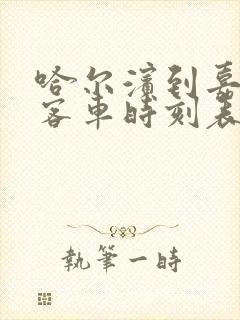 哈尔滨到嘉
客车时刻表
執筆一時